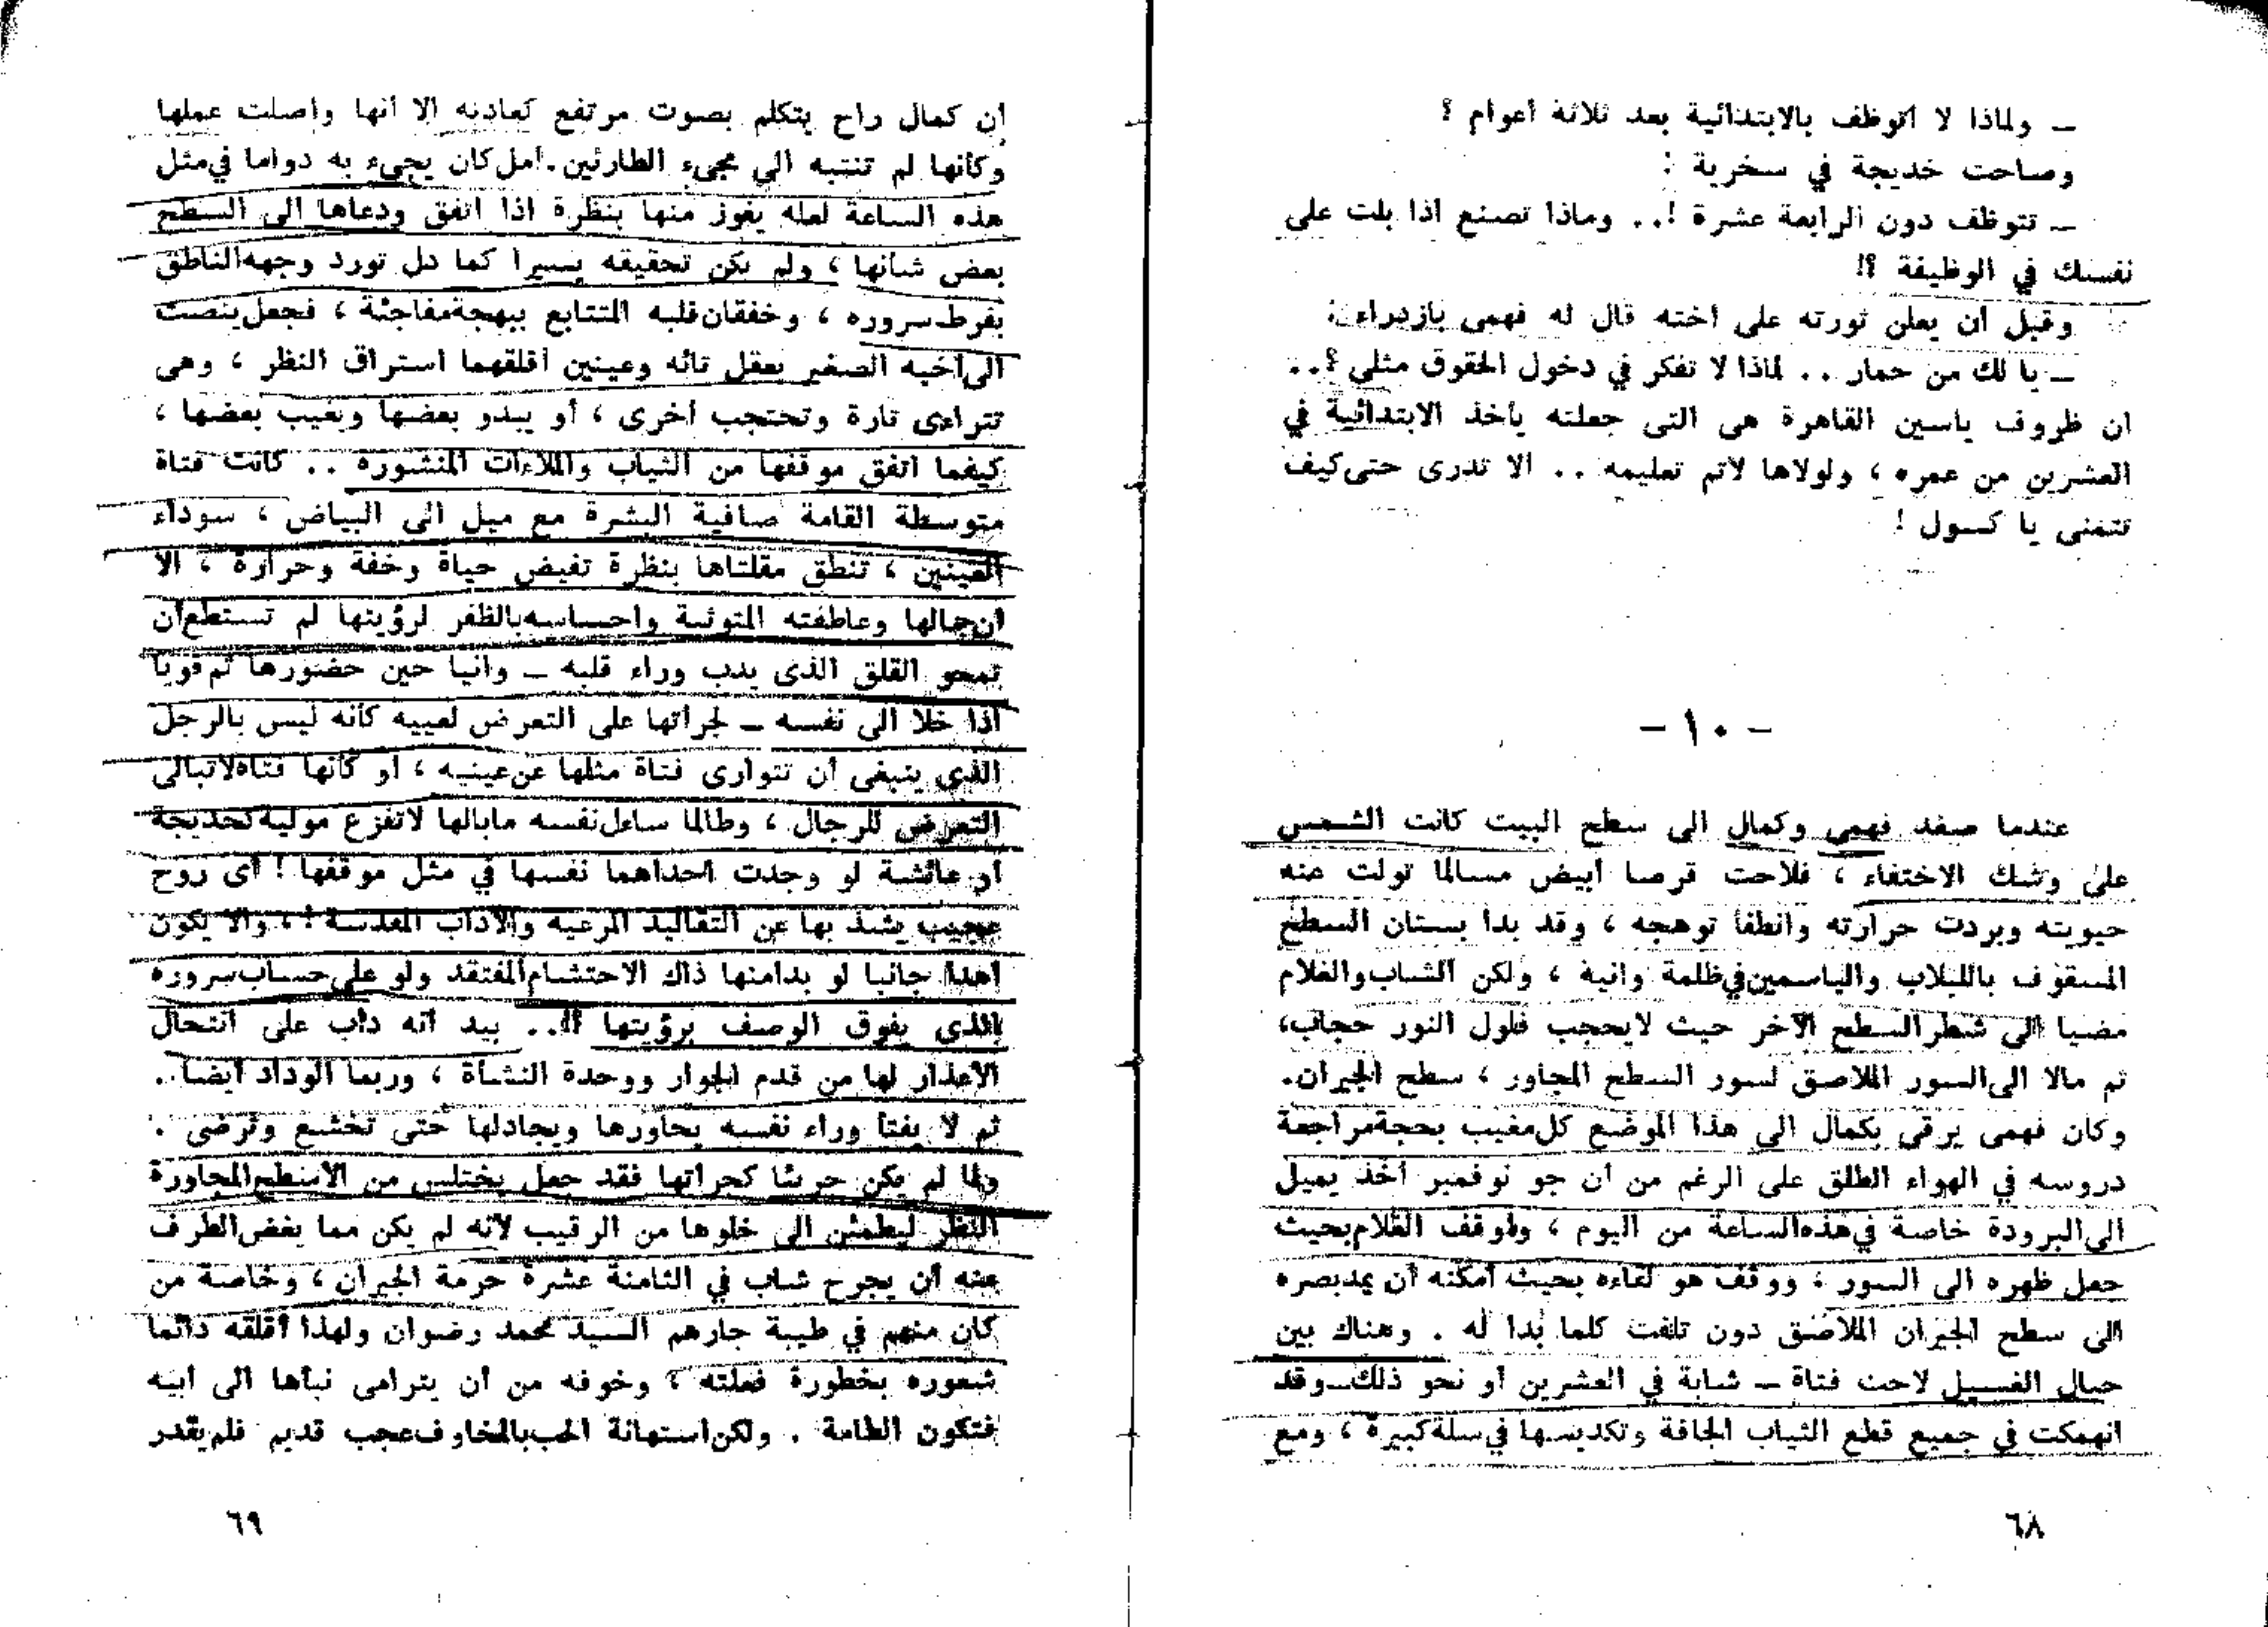 ـ ولماذا لا أتوظف بالابتدائية بعد ثلاثة أعوام ؟
وصاحت خديجة في سخرية :
ـ تتوظف دون الرابعة عشرة !.. وماذا تصنع اذا بلت على
نفسك في الوظيفة ؟!
وقبل أن يعلن ثورته على أخته قال له فهمى بازدراء :
ـ يا لك من حمار .. لماذا لا تفكر في دخول الحقوق مثلى ؟..
ان ظروف ياسين القاهرة هى التى جعلته يأخذ الابتدائية في
العشرين من عمره ، ولولاها لأتم تعليمه .. ألا تدرى حتى كيف
تتمنى يا كسول !
ـ ١٠ ـ
عندما صعد فهمى وكمال الى سطح البيت كانت الشمس
على وشك الاختفاء ، فلاحت قرصا أبيض مسالما تولت عنه
حيويته وبردت حرارته وانطفأ توهجه ، وقد بدا بستان السطح
المسقوف باللبلاب والياسمين في ظلمة وانية ، ولكن الشاب والغلام
مضيا الى شطر السطح الآخر حيث لا يحجب فلول النور حجاب،
ثم مالا الى السور الملاصق لسور السطح المجاور ، سطح الجيران.
وكان فهمى يرقى بكمال الى هذا الموضع كل مغيب بحجة مراجعة
دروسه في الهواء الطلق على الرغم من أن جو نوفمبر أخذ يميل
الى البرودة خاصة في هذه الساعة من اليوم ، وأوقف الغلام بحيث
جعل ظهره الى السور ، ووقف هو لقاءه بحيث أمكنه أن يمد بصره
الى سطح الجيران الملاصق دون تلفت كلما بدا له . وهناك بين
حبال الغسيل لاحت فتاة ـ شابة في العشرين أو نحو ذلك ـ وقد
انهمكت في جميع قطع الثياب الجافة وتكديسها في سلة كبيرة ، ومع
٦٨
أن كمال راح يتكلم بصوت مرتفع كعادته الا أنها واصلت عملها
وكأنها لم تنتبه الى مجىء الطارئين. أمل كان يجىء به دواما في مثل
هذه الساعة لعله يفوز منها بنظرة اذا اتفق ودعاها الى السطح
بعض شأنها ، ولم يكن تحقيقه يسيرا كما دل تورد وجهه الناطق
بفرط سروره ، وخفقان قلبه المتتابع ببهجة مفاجئة ، فجعل ينصت
الى أخيه الصغير بعقل تائه وعينين أقلقهما استراق النظر ، وهى
تتراءى تارة وتحتجب أخرى ، أو يبدو بعضها ويغيب بعضها ،
كيفما اتفق موقفها من الثياب والملاءات المنشورة .. كانت فتاة
متوسطة القامة صافية البشرة مع ميل الى البياض ، سوداء
العينين ، تنطق مقلتاها بنظرة تفيض حياة وخفة وحرارة ، الا
أن جمالها وعاطفته المتوثبة واحساسه بالظفر لرؤيتها لم تستطع أن
تمحو القلق الذى يدب وراء قلبه ـ وانيا حين حضورها ثم قويا
اذا خلا الى نفسه ـ لجرأتها على التعرض لعينيه كأنه ليس بالرجل
الذى ينبغى أن تتوارى فتاة مثلها عن عينيه ، أو كأنها فتاة لا تبالى
التعرض للرجال ، وطالما ساءل نفسه ما بالها لا تفزع مولية كخديجة
أو عائشة لو وجدت احداهما نفسها في مثل موقفها ! أى روح
عجيب يشذ بها عن التقاليد المرعية والآداب المقدسة ! ، وألا يكون
أهدأ جانبا لو بدا منها ذاك الاحتشام المفتقد ولو على حساب سروره
الذى يفوق الوصف برؤيتها ؟!.. بيد أنه دأب على انتحال
الأعذار لها من قدم الجوار ووحدة النشأة ، وربما الوداد أيضا ..
ثم لا يفتأ وراء نفسه يحاورها ويجادلها حتى تخشع وترضى .
ولما لم يكن جريئا كجرأتها فقد جعل يختلس من الأسطح المجاورة
النظر ليطمئن الى خلوها من الرقيب لأنه لم يكن مما يغض الطرف
عنه أن يجرح شاب في الثامنة عشرة حرمة الجيران ، وخاصة من
كان منهم في طيبة جارهم السيد محمد رضوان ولهذا أقلقه دائما
شعوره بخطورة فعلته ، وخوفه من أن يترامى نبأها الى أبيه
فتكون الطامة . ولكن استهانة الحب بالمخاوف عجب قديم فلم يقدر
٦٩